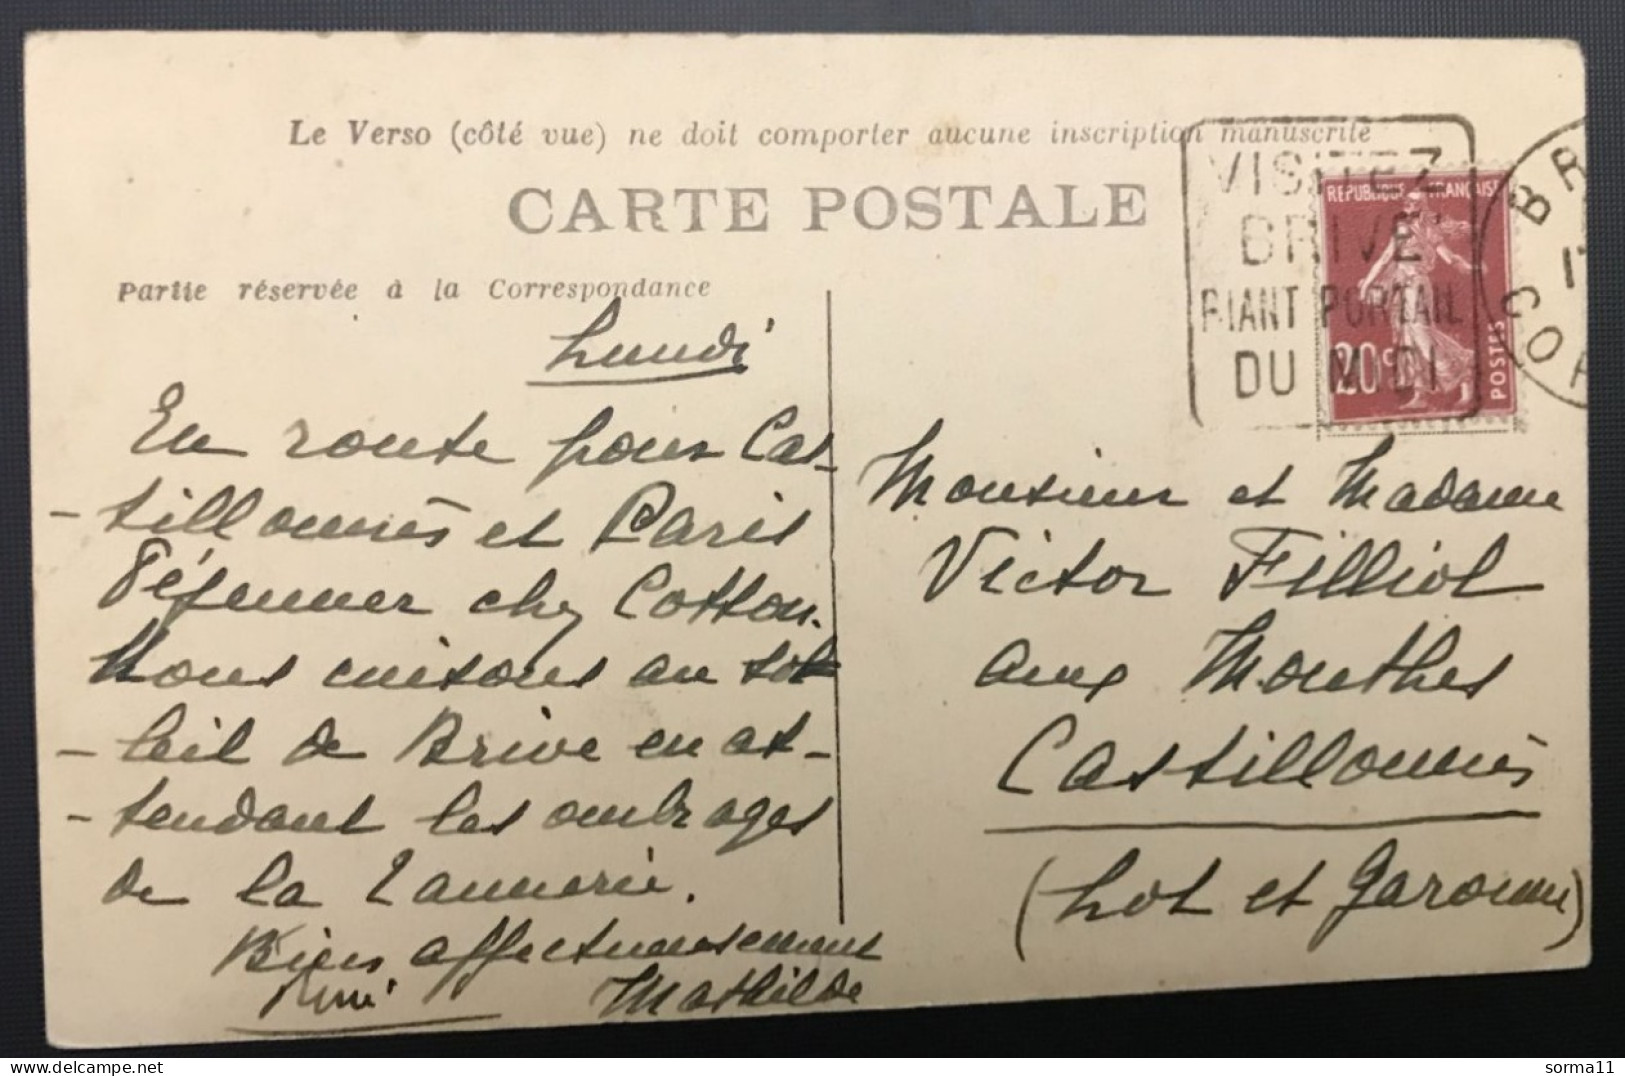 Le Verso (côté vue) ne doit comporter aucune inscription manuscrite
CARTE POSTALE
Partie réservée à la Correspondance
VISITEZ
BRIVE
RIANT PORTAIL
DU MIDI
REPUBLIQUE FRANÇAISE
20c
POSTES
BR
17
COR
Lundi
En route pour Cas-
-tillonnès et Paris
Déjeuner chez Cotton.
Nous cuisons au sol
-leil de Brive en at-
-tendant les ombrages
de la Tannerie.
Bien affectueusement
René Mathilde
Monsieur et Madame
Victor Filliol
aux Monthes
Castillonnès
(Lot et Garonne)
sorma11